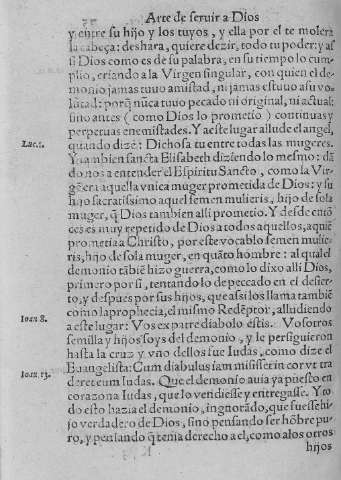 Arte de seruir a Dios
y entre su hijo y los tuyos, y ella por el te molerà
la cabeça: deshara, quiere dezir, todo tu poder: y as
si Dios como es de su palabra, en su tiempo lo cum-
plio, criando a la Virgen singular, con quien el de-
monio jamas tuuo amistad, ni jamas estuuo a su vo-
lũtad: porq̃ nũca tuuo pecado ni original, ni actual:
sino antes (como Dios lo prometio) continuas y
perpetuas enemistades. Y a este lugar allude el angel,
Luc. 1.
quando dize: Dichosa tu entre todas las mugeres.
Y tambien sancta Elisabeth diziendo lo mesmo: dã
do nos a entender el Espiritu Sancto, como la Vir-
gẽ era aquella vnica muger prometida de Dios: y su
hijo sacratissimo aquel semen mulieris, hijo de sola
muger, q̃ Dios tambien alli prometio. Y desde entõ
ces es muy repetido de Dios a todos aquellos, a quiẽ
prometia a Christo, por este vocablo semen mulie-
ris, hijo de sola muger, en quãto hombre: al qual el
demonio tãbiẽ hizo guerra, como lo dixo alli Dios,
primero por si, tentando lo de peccado en el desier-
to, y despues por sus hijos, que assi los llama tambiẽ
como la prophecia, el mismo Redẽptor, alludiendo
Ioan 8.
a este lugar: Vos ex patre diabolo estis. Vosotros
semilla y hijos soys del demonio, y le persiguieron
hasta la cruz y vno dellos fue Iudas, como dize el
Euangelista: Cum diabulus iam misisset in cor vt tra
Ioan. 13.
deret eum Iudas. Que el demonio auia ya puesto en
corazona Iudas, que lo vendiesse y entregasse. Y to
do esto hazia el demonio, ingnorãdo, que fuesse hi-
jo verdadero de Dios, sino pensando ser hõbre pu-
ro, y pensando q̃ tenia derecho a el, como a los otros
hijos